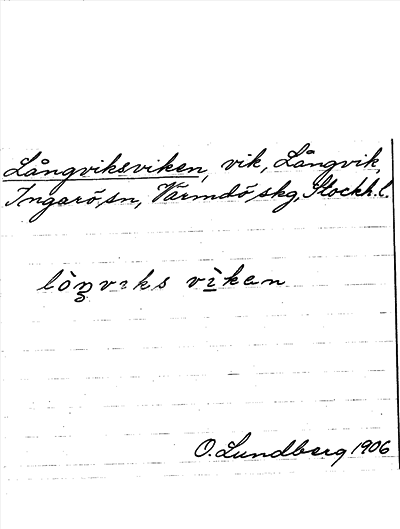 Långviksviken, vik, Långvik,
Ingarö, sn, Värmdö, skg, Stockh. l.
lòŋviks vìkən
O. Lundberg 1906